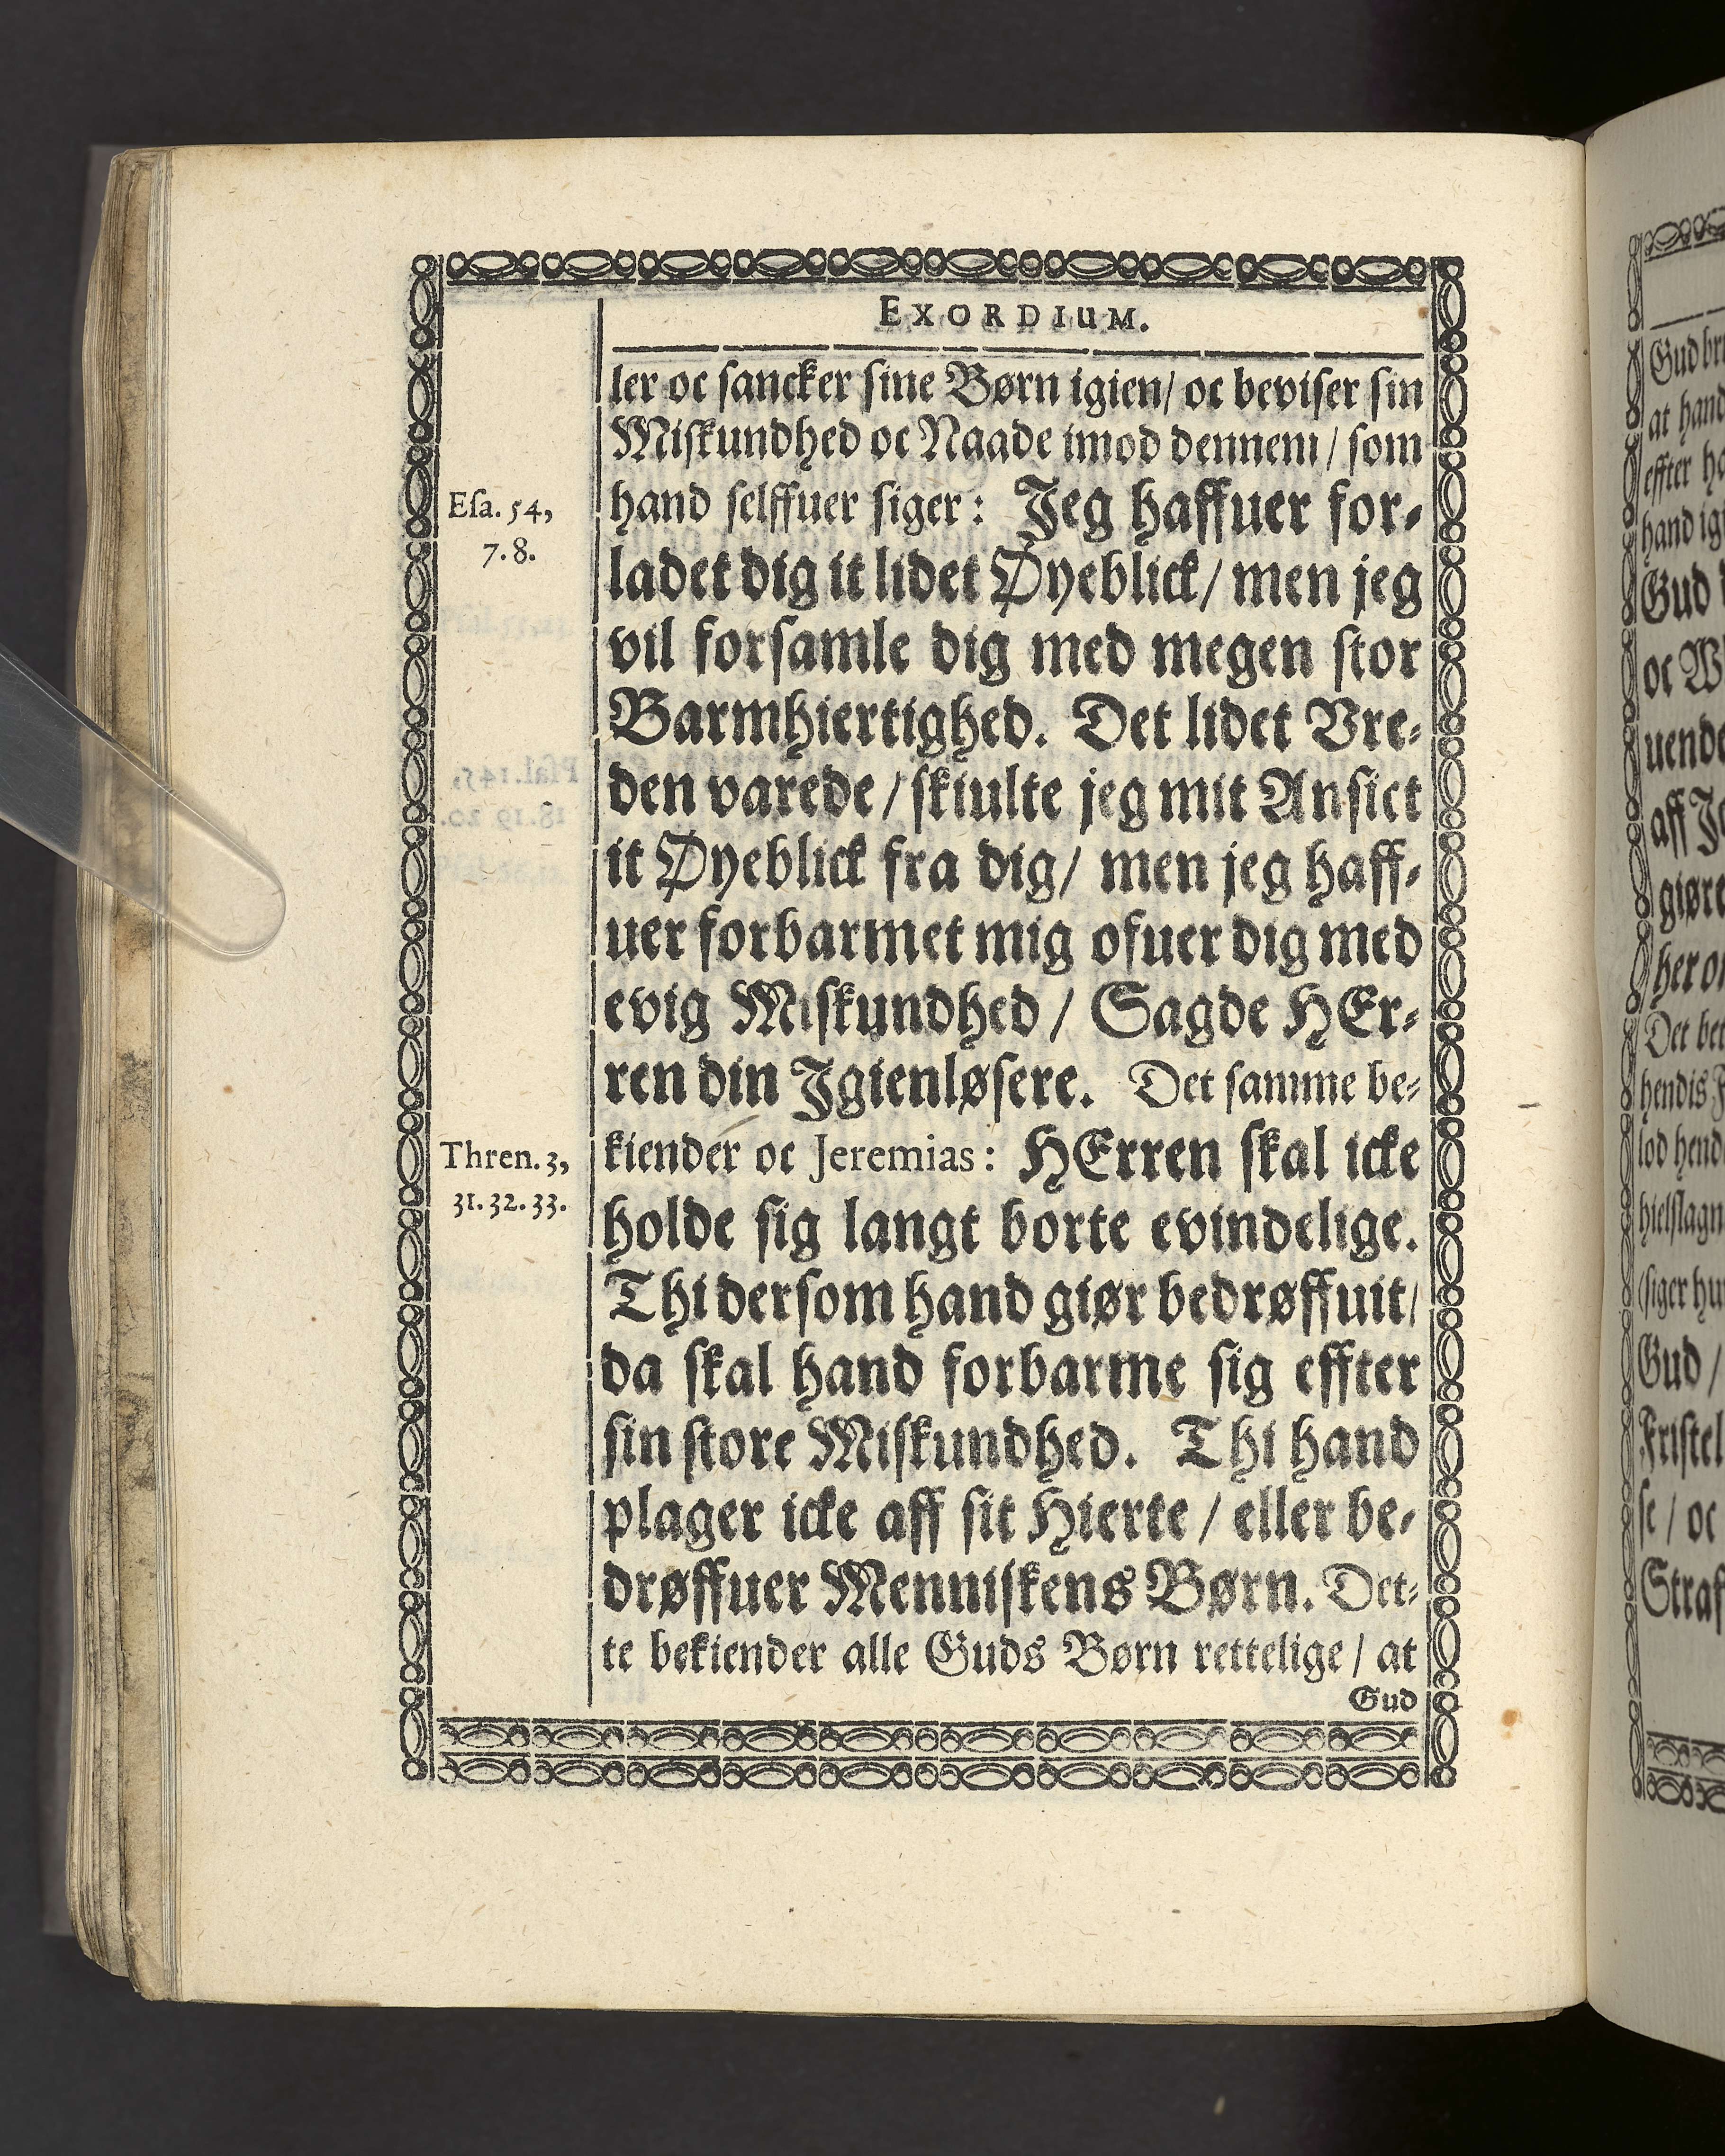 EXORDIUM.
ler oc sancker sine Børn igien/ oc beviser sin
Miskundhed oc Naade imod dennem/ som
Esa. 54,
7. 8.
hand selffuer siger: Jeg haffuer for-
ladet dig it lidet Øyeblick/ men jeg
vil forsamle dig med megen stor
Barmhiertighed. Det lidet Vre-
den varede/ skiulte jeg mit Ansict
it Øyeblick fra dig/ men jeg haff-
uer forbarmet mig ofuer dig med
evig Miskundhed/ Sagde HEr-
ren din Igienløsere. Det samme be-
Thren. 3,
31. 32. 33.
kiender oc Jeremias: HErren skal icke
holde sig langt borte evindelige.
Thi dersom hand giør bedrøffuit/
da skal hand forbarme sig effter
sin store Miskundhed. Thi hand
plager icke aff sit Hierte/ eller be-
drøffuer Menniskens Børn. Det-
te bekiender alle Guds Børn rettelige/ at
Gud
at hand
effter
hand
Gud
oc
uende
aff
giøre
her
Det
hendis
lod
(siger
Gud/
se/ oc